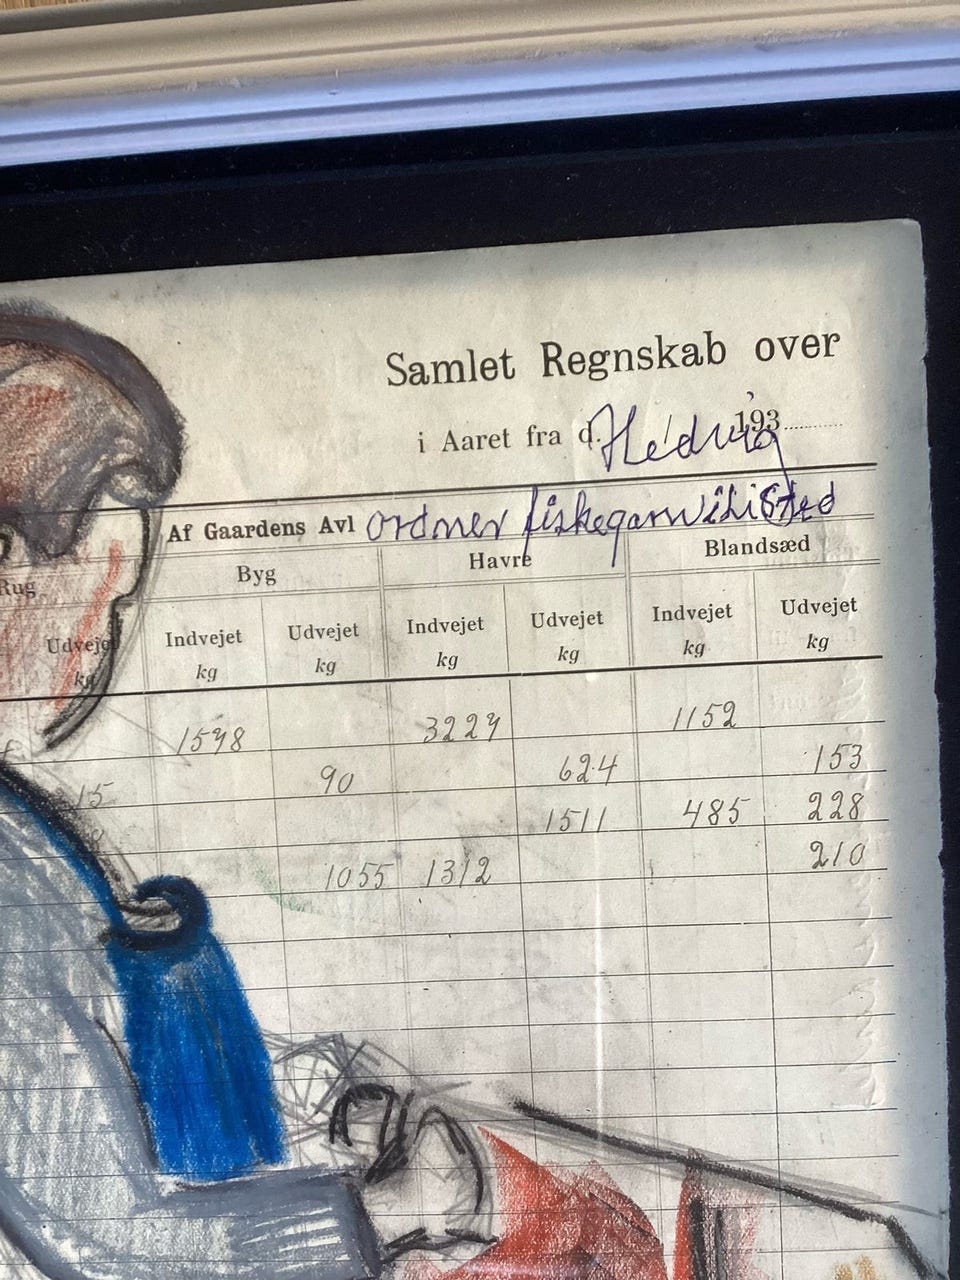 Samlet Regnskab over
i Aaret fra d. Hedvig 193
Af Gaardens Avl ordner fiskegarn i Listed
Rug Byg Havre Blandsæd
Udvejet Indvejet Udvejet Indvejet Udvejet Indvejet Udvejet
kg kg kg kg kg kg kg
1598 3227 1152
15 90 624 153
1511 485 228
1055 1312 210